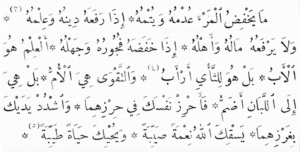 مَا يَخْفِضُ الْمَرْءَ عُدْمُهُ وَيُتْمُهُ * إِذَا رَفَعَهُ دِينُهُ وَعِلْمُهُ (٣) *
وَلَا يَرْفَعُهُ مَالُهُ وَأَهْلُهُ * إِذَا خَفَضَهُ فُجُورُهُ وَجَهْلُهُ * الْعِلْمُ هُوَ
الْأَبُ * بَلْ هُوَ لِلثَّأْيِ أَرْأَبُ (٤) * وَالتَّقْوَى هِيَ الْأُمُّ * بَلْ هِيَ
إِلَى اللَّبَانِ أَضَمُّ * فَأَحْرِزْ نَفْسَكَ فِي حِرْزِهِمَا * وَاشْدُدْ يَدَيْكَ
بِغَرْزِهِمَا * يَسْقِكَ اللَّهُ نِعْمَةً صَيِّبَةً (٥) * وَيُحْيِكَ حَيَاةً طَيِّبَةً *